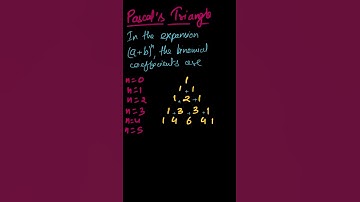 Pascal's Triangle
In the expansion
(a+b)ⁿ, the binomial
coefficients are
n=0 1
n=1 1 1
n=2 1 2 1
n=3 1 3 3 1
n=4 1 4 6 4 1
n=5